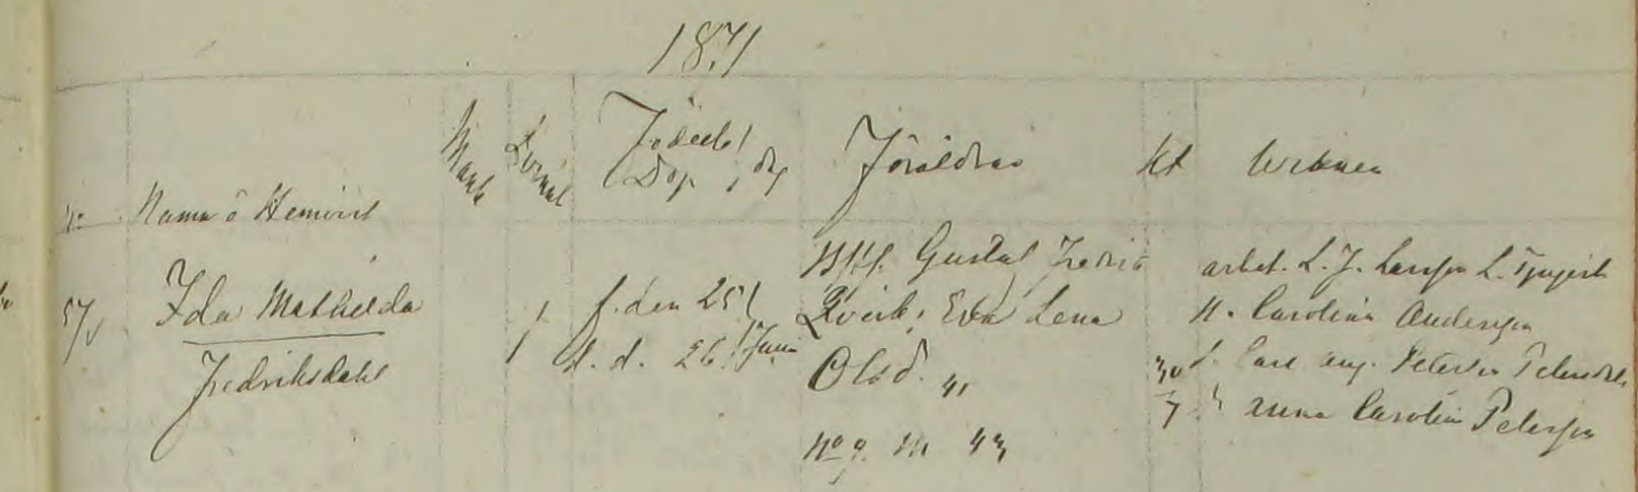 1871
No Namn o Hemvist Mank Qvinnk Födelse Dop dag Föräldrar kt Wittnen
57 Ida Mathilda
Fredriksdahl
1
f. den 25
d. d. 26 Juni
Gustaf Fredric
Qvick, Eva Lena
Olsd. 41
No 9. 43
30
7
arbet. L. J. Larsson L.
H. Carolina Andersson
Carl Aug. Peterson
Anna Carolin Peterson